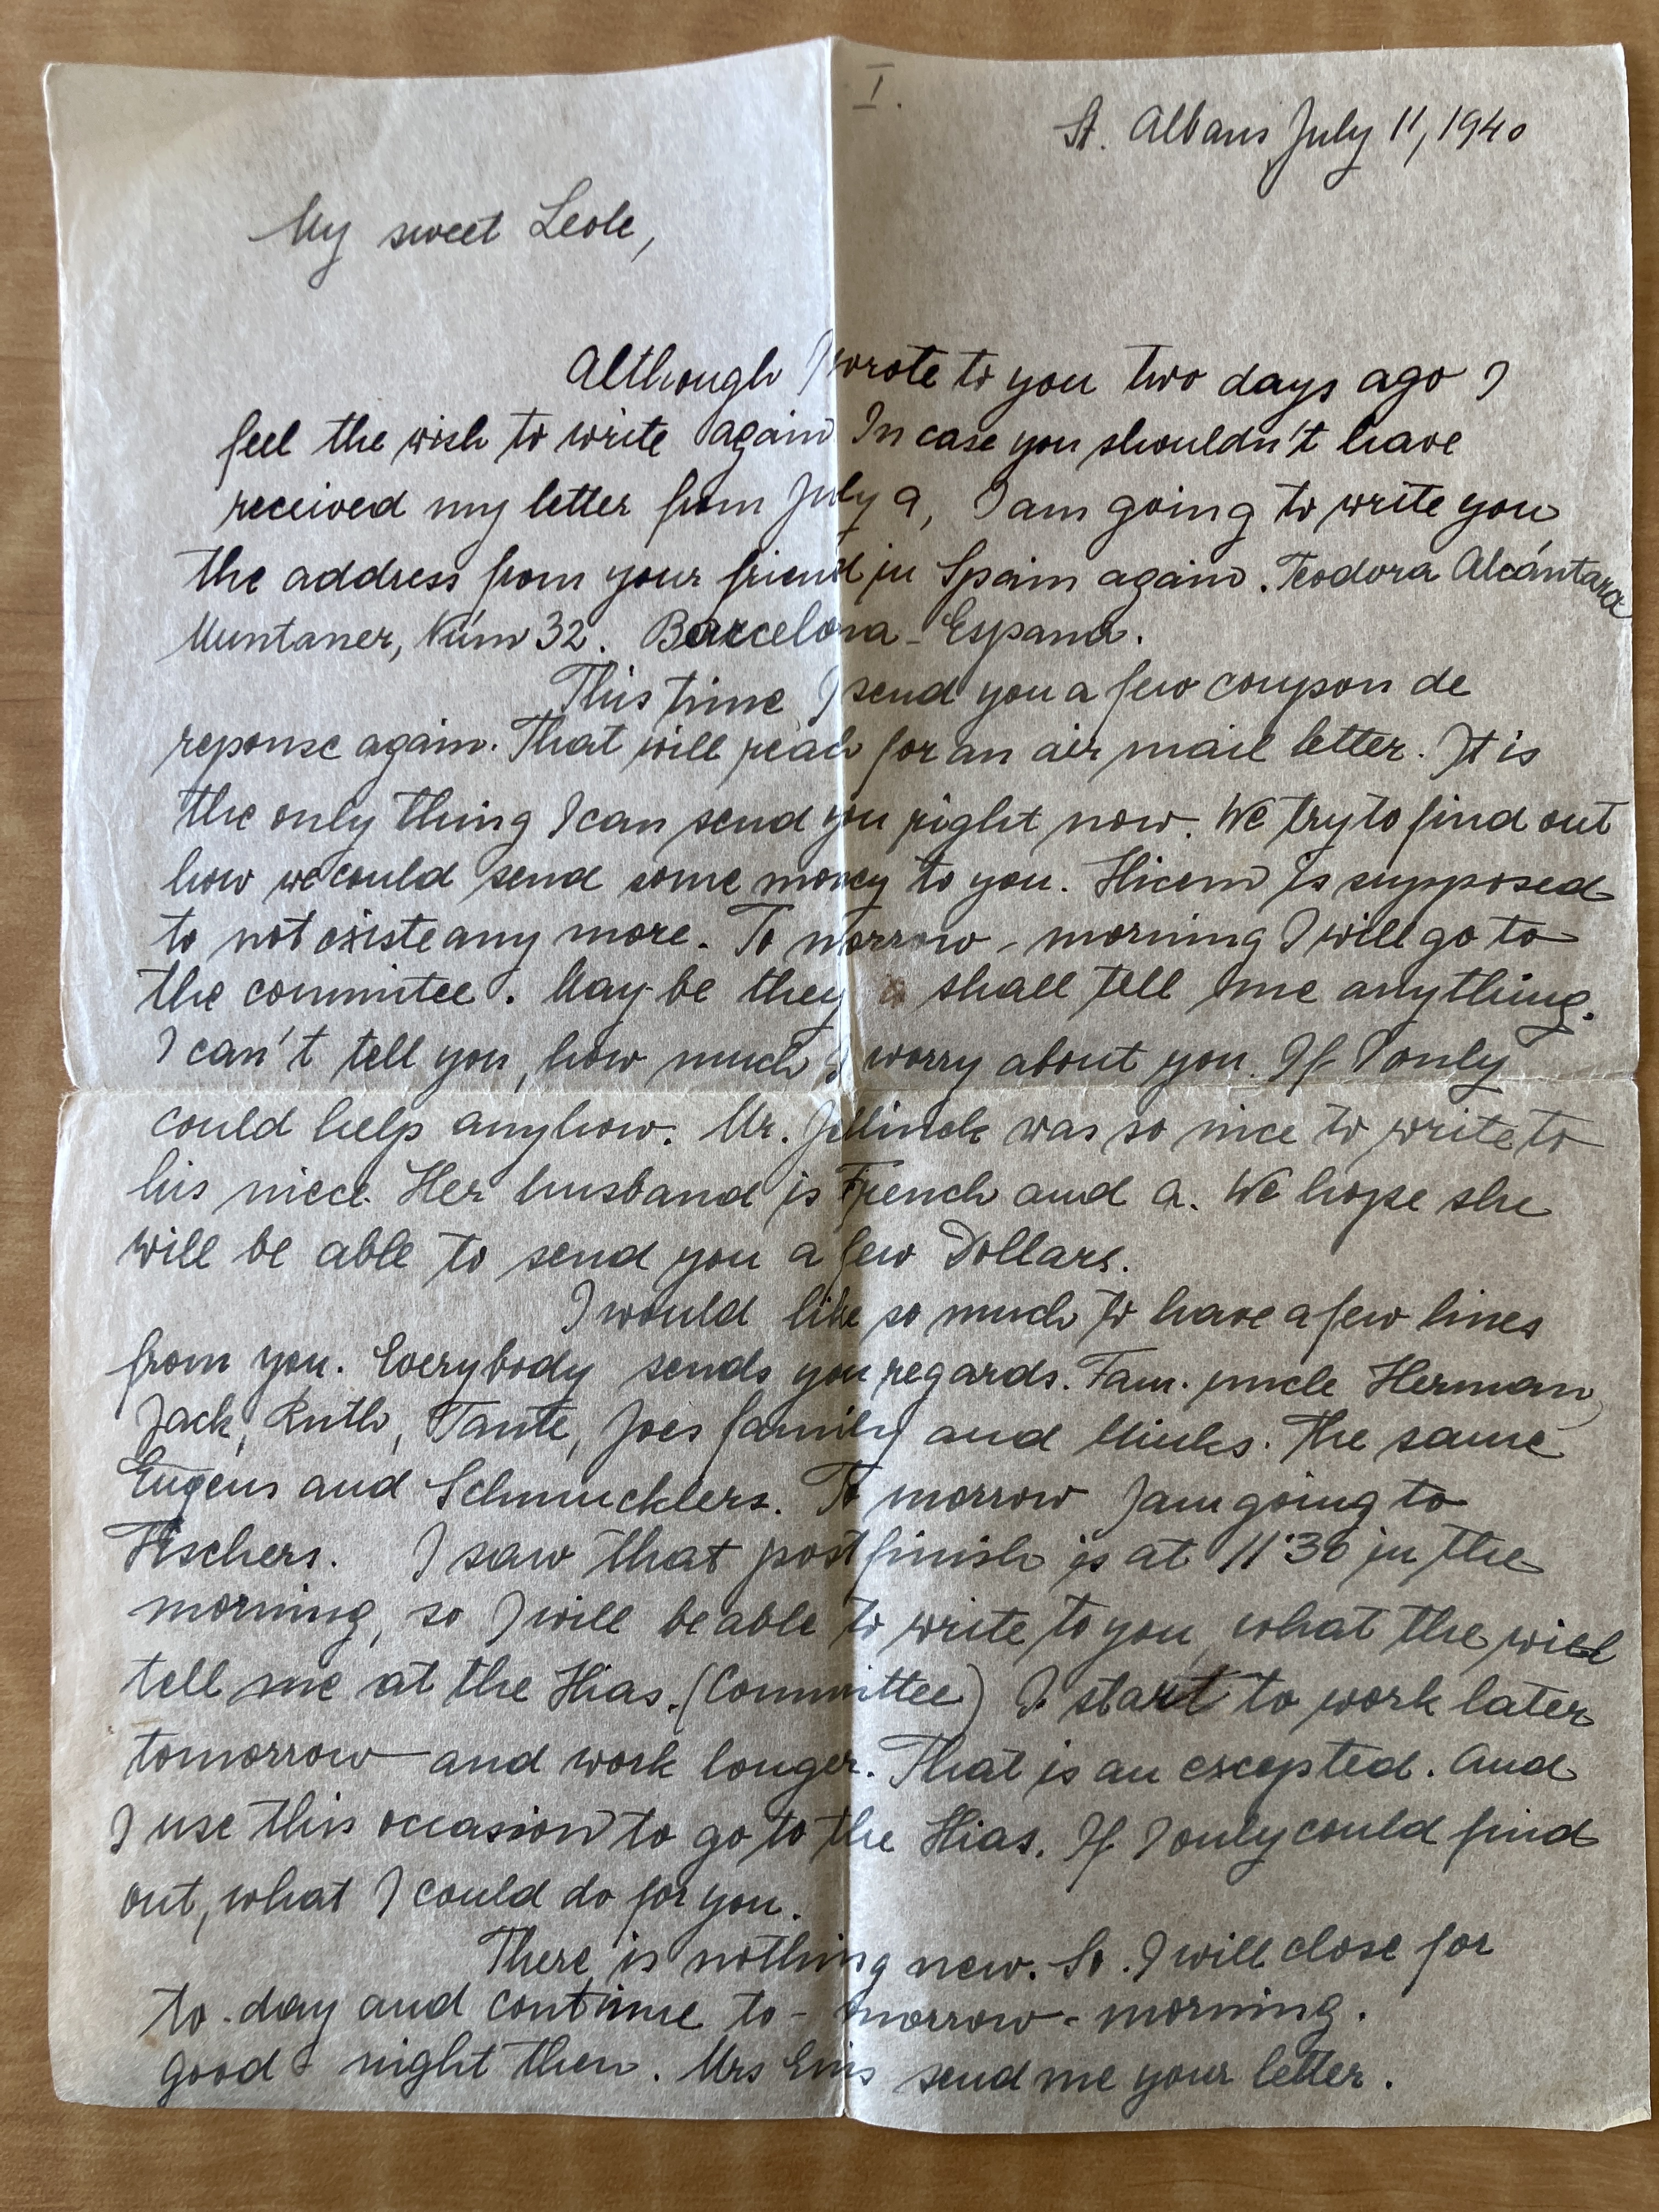 I.
St. Albans July 11, 1940
My sweet Leole,
Although I wrote to you two days ago I
feel the wish to write again. In case you shouldn't have
received my letter from July 9, I am going to write you
the address from your friend in Spain again. Teodora Alcántara
Muntaner, Núm 32. Barcelona - Espana.
This time I send you a few coupon de
reponse again. That will reach for an air mail letter. It is
the only thing I can send you right now. We try to find out
how we could send some money to you. Hicem is supposed
to not existe any more. To morrow - morning I will go to
the commitee. May be they shall tell me anything.
I can't tell you, how much I worry about you. If I only
could help anyhow. Mr. Jellinek was so nice to write to
his niece. Her husband is French and a. We hope she
will be able to send you a few Dollars.
I would like so much to have a few lines
from you. Everybody sends you regards. Fam. uncle Herman,
Jack, Ruth, Tante, Joes family and Minks. The same
Eugens and Schmucklers. To morrow I am going to
Fischers. I saw that post finish is at 11:30 in the
morning, so I will be able to write to you, what the will
tell me at the Hias. (Committee) I start to work later
tomorrow and work longer. That is an excepted. And
I use this occasion to go to the Hias. If I only could find
out, what I could do for you.
There is nothing new. So. I will close for
to-day and continue to-morrow-morning.
good night then. Mrs send me your letter.